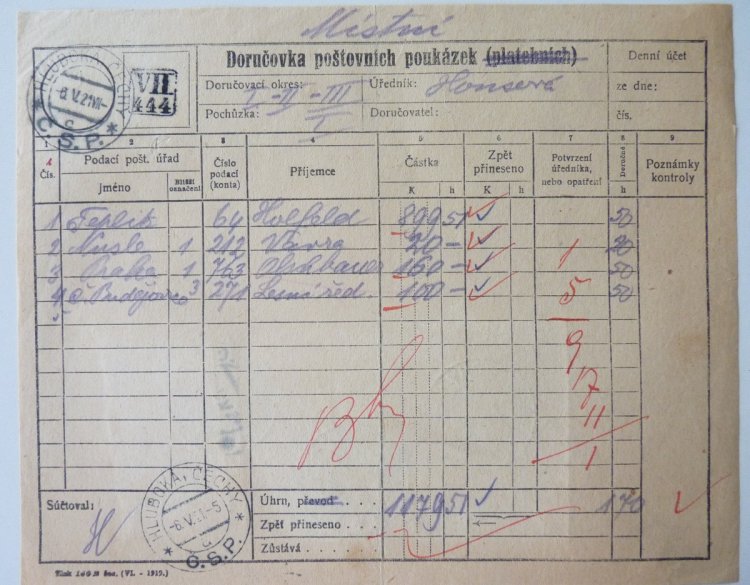 Místní
Doručovka poštovních poukázek (platebních)
Denní účet
HLUBOKÁ, ČECHY
6.V.21
Č.S.P.
VII.
444
Doručovací okres: I -II -III
Úředník: Honsová
ze dne:
Pochůzka: I
Doručovatel:
čís.
1 2 3 4 5 6 7 8 9
Čís. Podací pošt. úřad Číslo podací (konta) Příjemce Částka Zpět přineseno Potvrzení úředníka, nebo opatření Doručné Poznámky kontroly
Jméno Bližší označení K h K h h
1 Teplik 64 Holfeld 899 51 50
2 Nusle 1 212 Vavra 20 — 20
3 Praha 1 763 160 — 50
4 Č Budějovice 3 271 Lesní řed. 100 — 50
5
1
5
9
17
11
1
Súčtoval:
Úhrn, převod 1179 51 170
Zpět přineseno
Zůstává
HLUBOKÁ, ČECHY
-6.V.21-5
Č.S.P.
(VI. - 1919.)